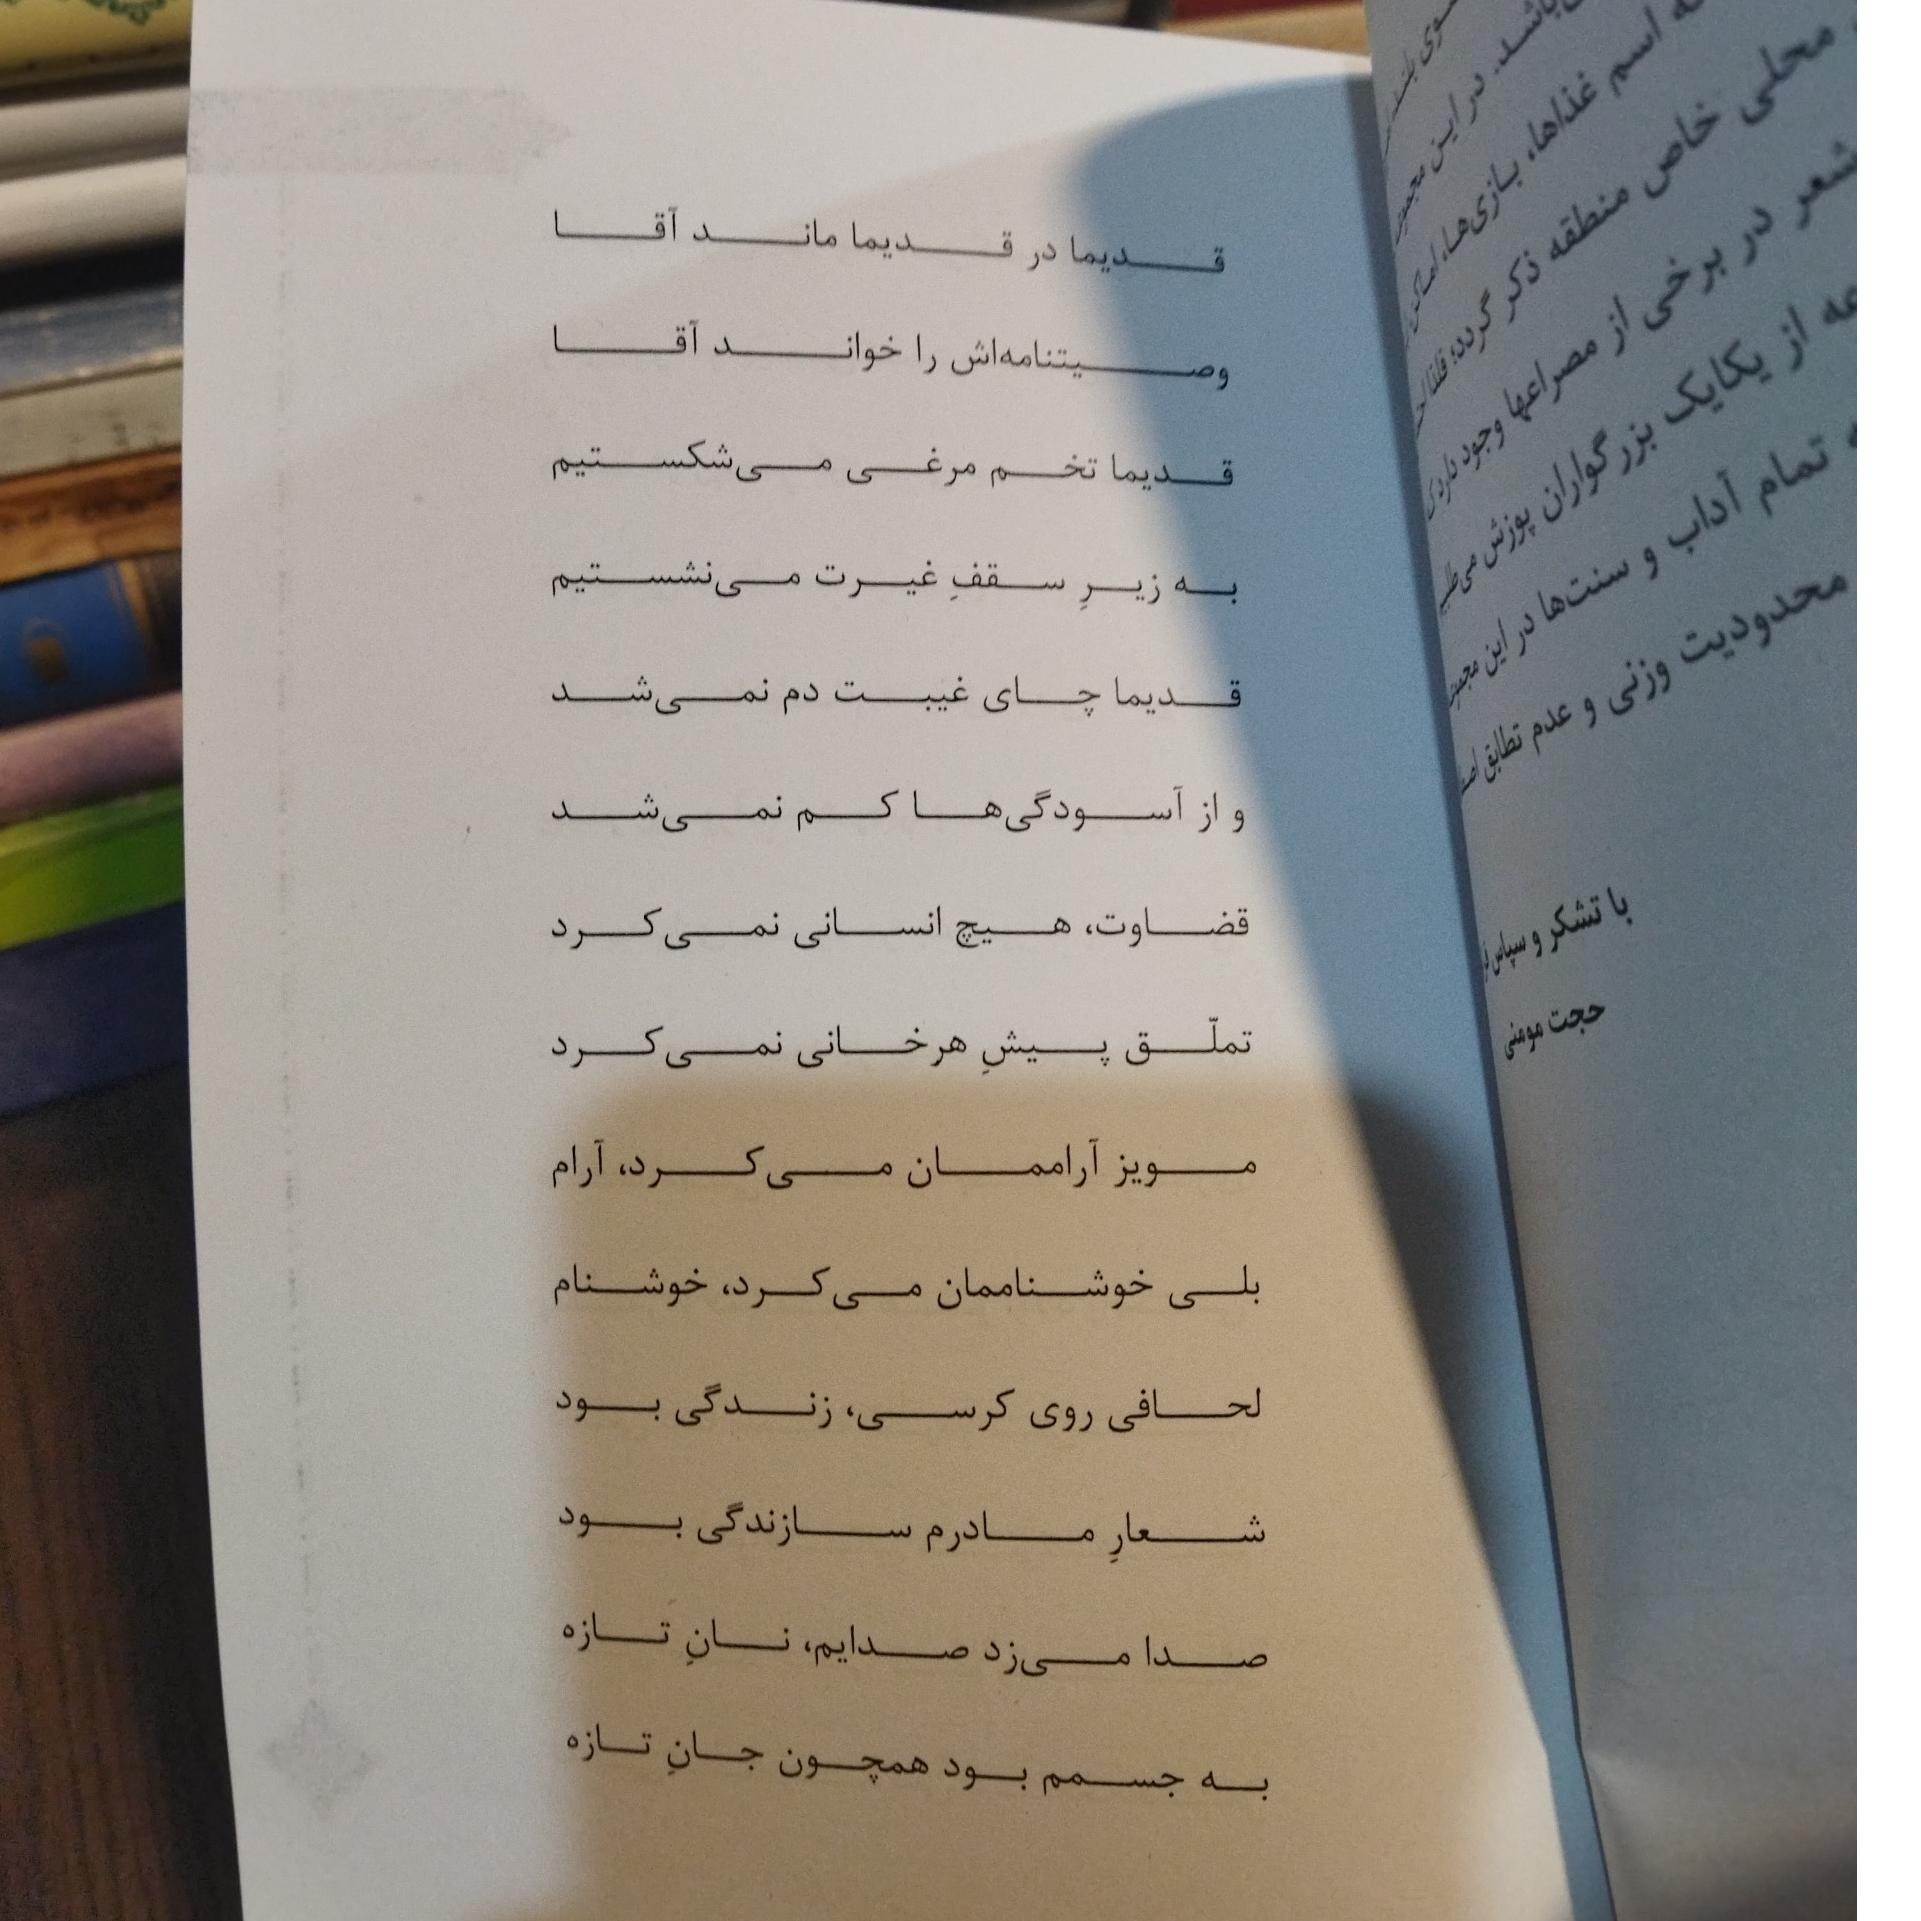 باشد. در این
اسم غذاها، بازی‌ها، اماکن
محلی خاص منطقه ذکر گردد؛ فلذا
شعر در برخی از مصراعها وجود دارد
از یکایک بزرگواران پوزش می‌طلبم
تمام آداب و سنت‌ها در این
محدودیت وزنی و عدم تطابق
با تشکر و سپاس
حجت مومنی
قدیما در قدیما ماند آقا
وصیتنامه‌اش را خواند آقا
قدیما تخم مرغی می‌شکستیم
به زیرِ سقفِ غیرت می‌نشستیم
قدیما چای غیبت دم نمی‌شد
و از آسودگی‌ها کم نمی‌شد
قضاوت، هیچ انسانی نمی‌کرد
تملّق پیشِ هرخانی نمی‌کرد
مویز آراممان می‌کرد، آرام
بلی خوشناممان می‌کرد، خوشنام
لحافی روی کرسی، زندگی بود
شعارِ مادرم سازندگی بود
صدا می‌زد صدایم، نانِ تازه
به جسمم بود همچون جانِ تازه